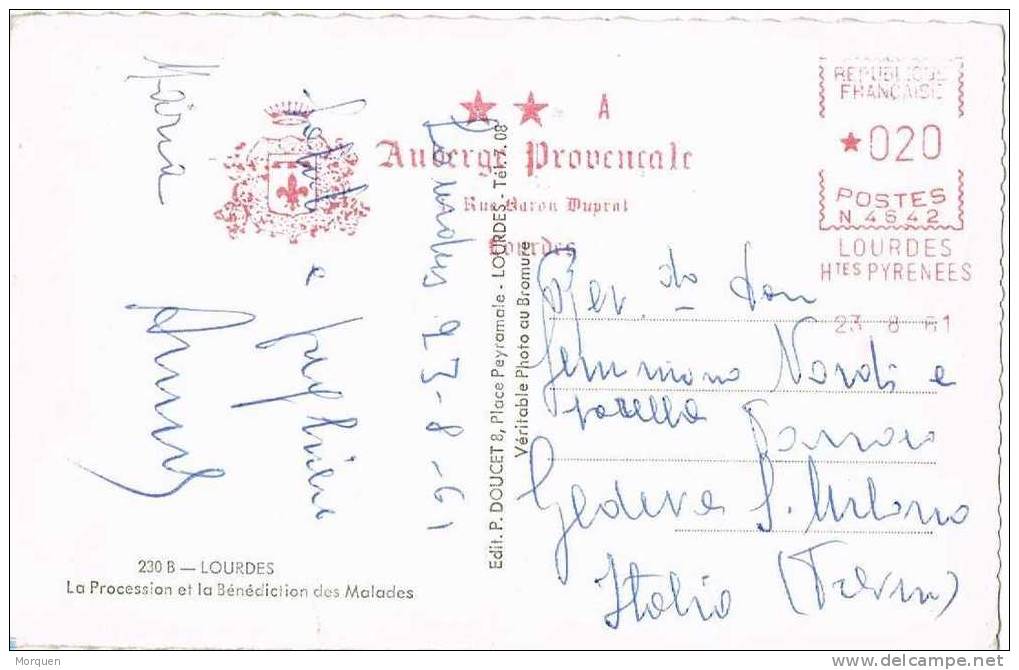 ★ ★ A
Auberge Provençale
Rue Baron Duprat
Lourdes
REPUBLIQUE
FRANÇAISE
★020
POSTES
N.4642
LOURDES
HTES PYRENEES
23 8 61
Lourdes 23-8-61
Saluti e preghiere
Maria
Edit. P. DOUCET 8, Place Peyramale - LOURDES - Tél. 7.08
Véritable Photo au Bromure
Rev.do don
Nardi e
sorella
Parroco
S. Urbano
Italia (Terni)
230 B — LOURDES
La Procession et la Bénédiction des Malades
Morquen
www.delcampe.net